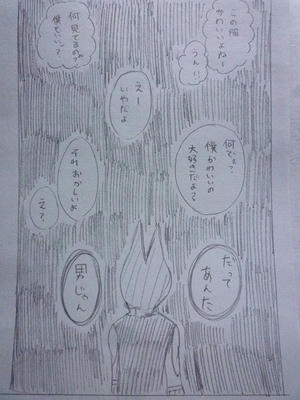 この服
かわいいよねー
うんー!
何見てるの?
僕もいい?
えー
いやだよ
何で?
僕かわいいの
大好きだよ?
それおかしいよ
え?
だって
あんた
男じゃん